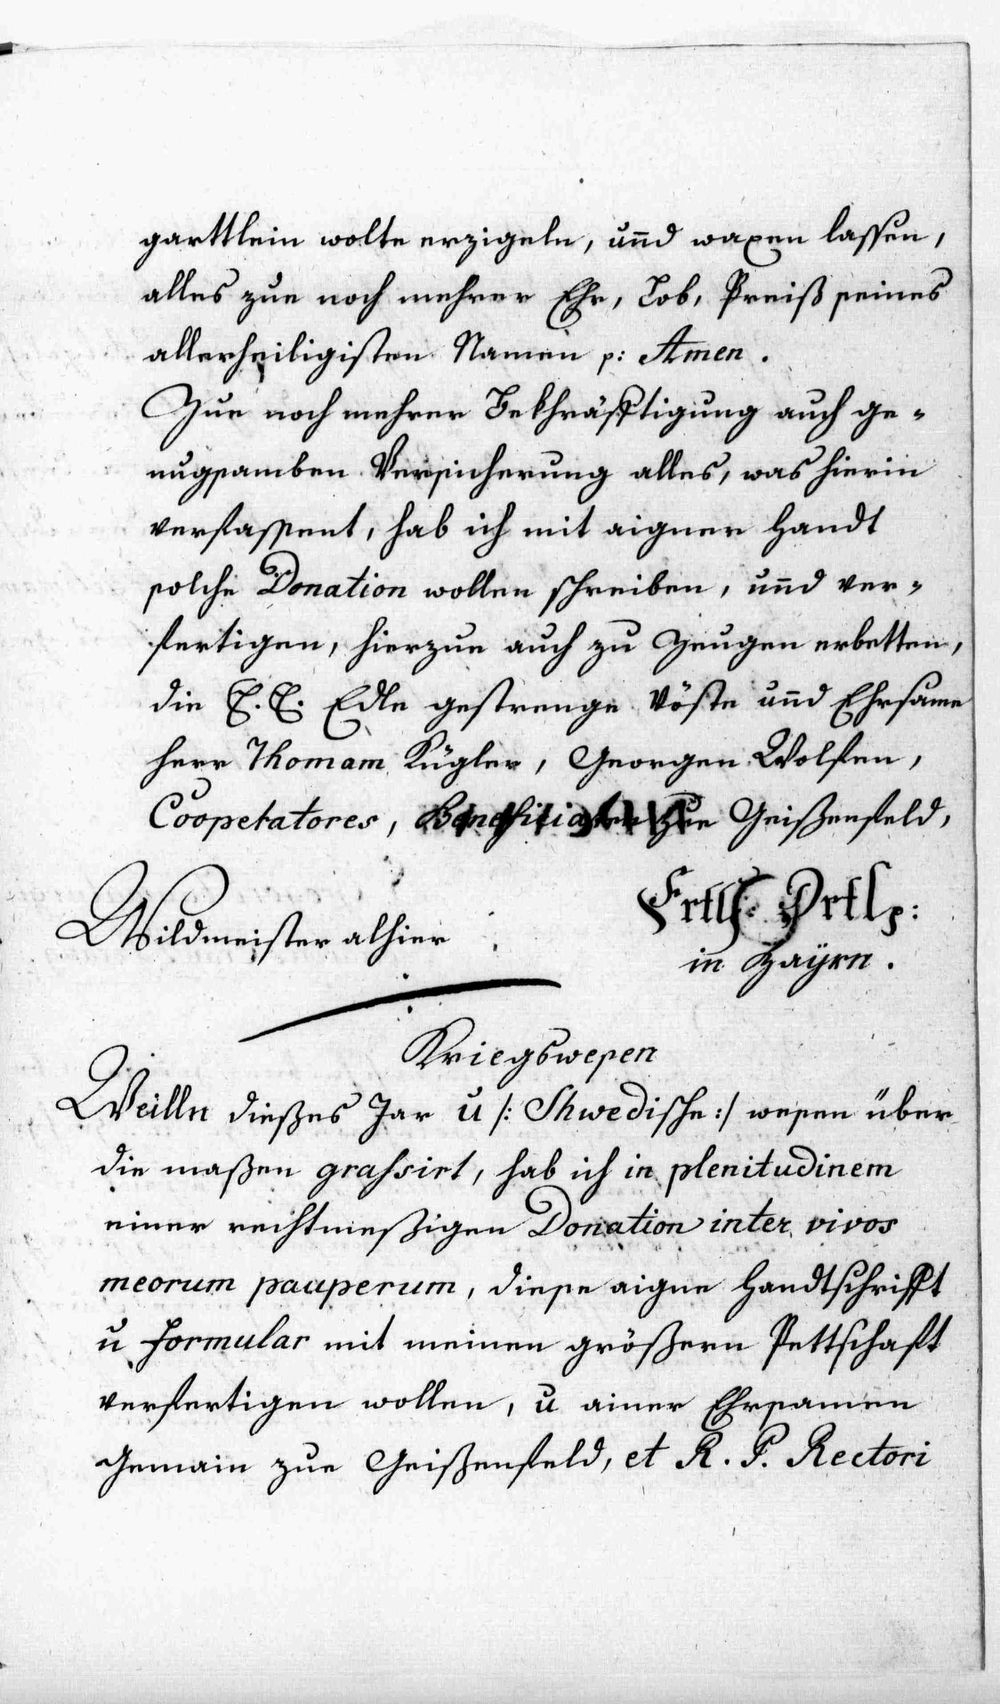 garttlein wolte erzigeln, und waxen lassen,
alles zue noch mehrer Ehr, Lob, Preiß seines
allerheiligisten Namen p: Amen.
Zue noch mehrer Bekhräfftigung auch ge-
nugsamben Versicherung alles, was hierin
verfassent, hab ich mit aigner Handt
solche Donation wollen schreiben, und ver-
fertigen, hierzue auch zu Zeugen erbetten,
die E. E. Edle gestrenge Vöste und Ehrsame
herr Thomam Kügler, Georgen Wolfen,
Coopetatores, zue Geißenfeld,
Wildmeister alhier
in Bayrn.
Kriegswesen
Weilln dießes Jar u /: Shwedische :/ wesen über
die maßen grahsirt, hab ich in plenitudinem
einer rechtmeßigen Donation inter vivos
meorum pauperum, diese aigne Handtschrifft
u formular mit meinen größern Pettschaft
verfertigen wollen, u ainer Ehrsamen
Gemain zue Geißenfeld, et R. P. Rectori